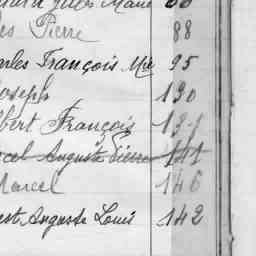 Jules Marie 60
es Pierre 88
arles François Mie 95
Joseph 130
bert François 131
cel Auguste Pierre 141
Marcel 146
est Auguste Louis 142